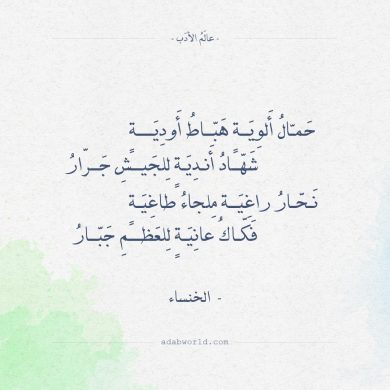 - عالَمُ الأدَب -
حَمّالُ أَلوِيَــةٍ هَبّــاطُ أَودِيَـــــةٍ
شَهّــادُ أَنـدِيَـةٍ لِلجَيــشِ جَــرّارُ
نَـحّـارُ راغِيَــةٍ مِلجاءُ طاغِيَــةٍ
فَكّــاكُ عانِيَــةٍ لِلعَظــمِ جَبّــارُ
- الخنساء
adabworld.com